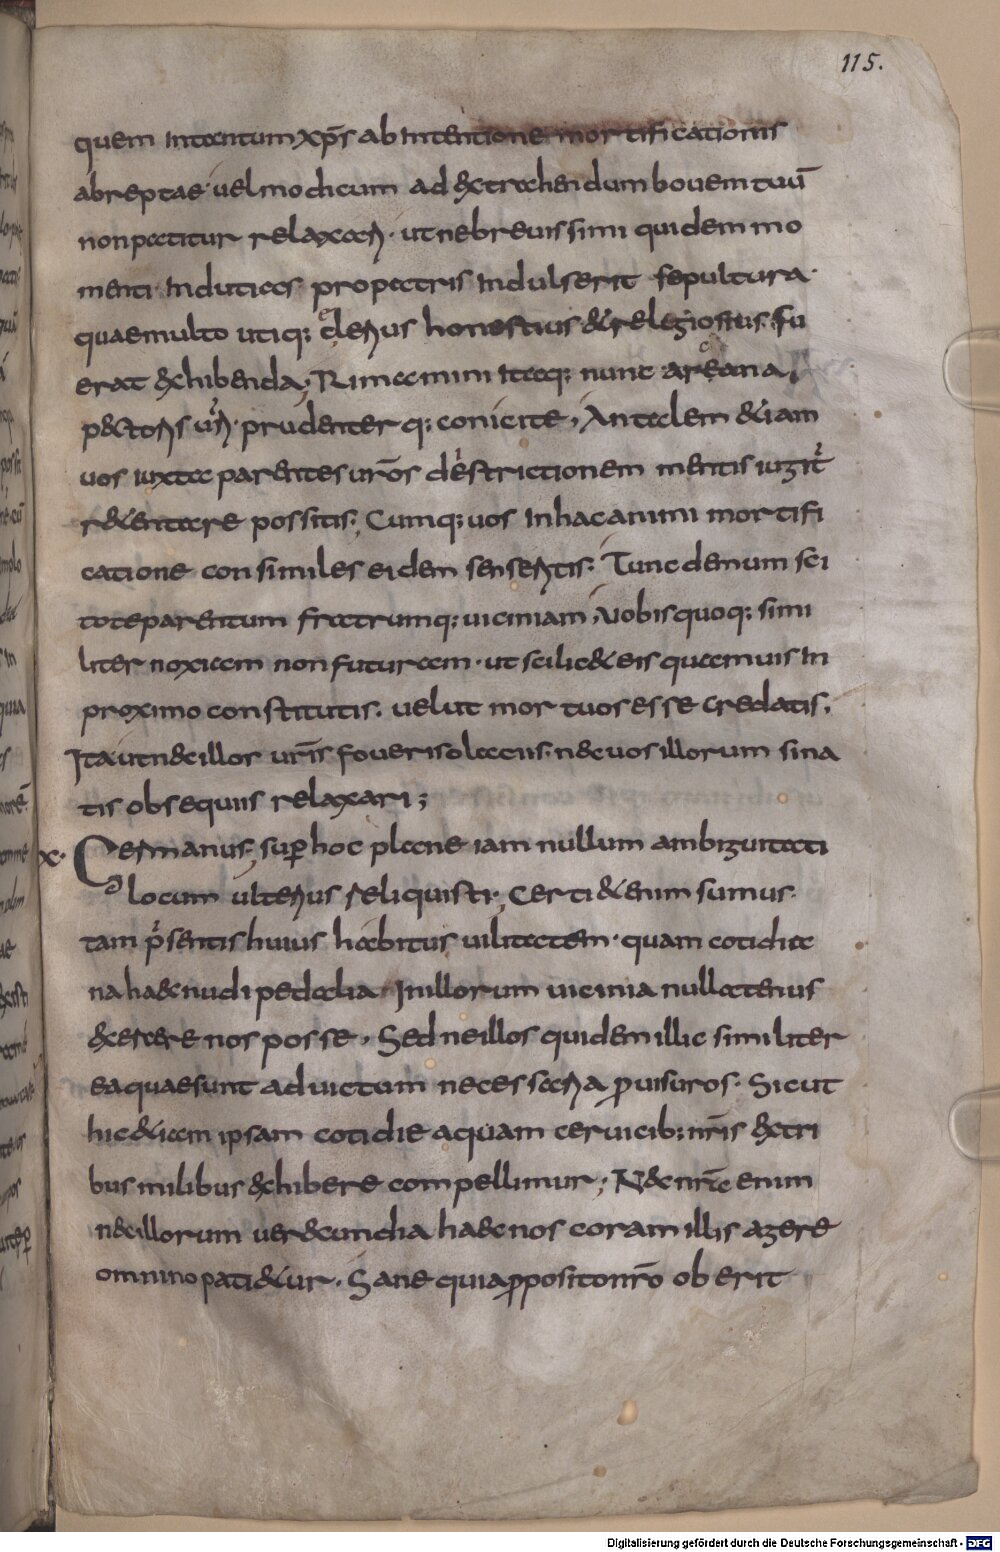 115.
quem intantum xp̄s ab intentione mortificationis
abreptae· uel modicum ad extrahendum bouem tuū
non patitur relaxari· ut ne breuissimi quidem mo
menti indutias pro patris indulserit sepultura·
quae multo utiq; celerius honestius & religiosius fu
erat exhibenda; Rimamini itaq; nunc arcana
pectoris ur̄i· prudenterq; conicite, An talem &iam
uos iuxta parentes ur̄os destrictionem mentis iugit̉
r&entare possitis; Cumq; uos in hac animi mortifi
catione consimiles eidem senseritis; Tunc demum sci
tote parentum fratrumq; uiciniam, Nobis quoq; simi
liter noxiam non futuram· ut scilic& eis quamuis in
proximo constitutis· uelut mortuos esse credatis;
Ita ut nec illor ur̄is foueri solaciis· nec uos illorum sina
tis obsequiis relaxari;
x· Germanus; sup̄ hoc plane iam nullum ambiguitati
locum ulterius reliquisti; Certi &enim sumus
tam p̉sentis huius habitus uilitatem· quam cotidia
na haec nudipedalia in illorum uicinia nullatenus
exercere nos posse, Sed ne illos quidem illic similiter
ea quae sunt ad uictum necessaria ꝓuisuros· Sicut
hic &iam ipsam cotidie aquam ceruicib; nr̄is ex tri
bus milibus exhibere compellimur; Nec nr̄a enim
nec illorum uerecundia haec nos coram illis agere
omnino pati&ur, Sane quia ꝓposito nr̄o oberit
Digitalisierung gefördert durch die Deutsche Forschungsgemeinschaft - DFG